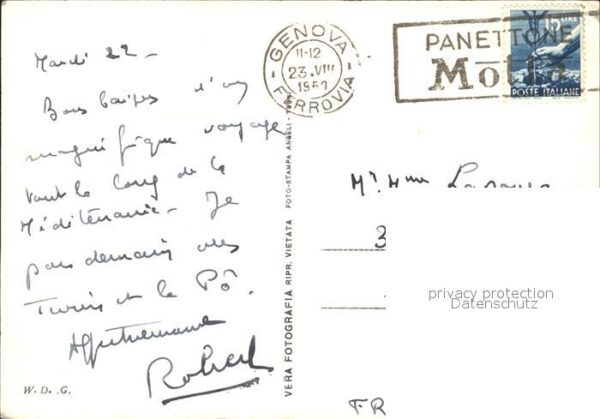 Mardi 22 -
Bons baisers d'un
magnifique voyage
tout le long de la
Méditerranée - Je
pars demain vers
Turin et le Pô.
Affectueusement
Robert
W. D. G.
VERA FOTOGRAFIA RIPR. VIETATA FOTO-STAMPA ANGELI -
GENOVA
11-12
23.VIII
FERROVIA
PANETTONE
Motta
15 LIRE
POSTE ITALIANE
Mr. Mme
3
privacy protection
Datenschutz
FR